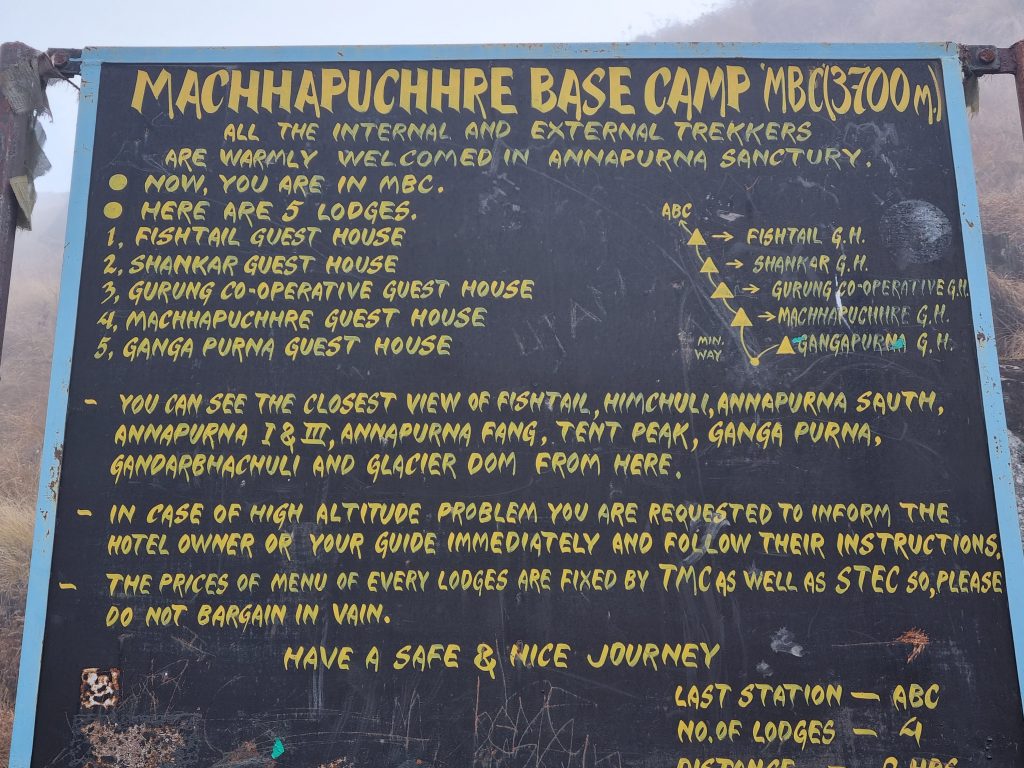 MACHHAPUCHHRE BASE CAMP 'MBC'(3700 M.)
ALL THE INTERNAL AND EXTERNAL TREKKERS
ARE WARMLY WELCOMED IN ANNAPURNA SANCTURY.
● NOW, YOU ARE IN MBC.
● HERE ARE 5 LODGES.
1, FISHTAIL GUEST HOUSE
2, SHANKAR GUEST HOUSE
3, GURUNG CO-OPERATIVE GUEST HOUSE
4, MACHHAPUCHHRE GUEST HOUSE
5, GANGA PURNA GUEST HOUSE
ABC
→ FISHTAIL G.H.
→ SHANKAR G.H.
→ GURUNG CO-OPERATIVE G.H.
→ MACHHAPUCHHRE G.H.
→ GANGAPURNA G.H.
MIN.
WAY
- YOU CAN SEE THE CLOSEST VIEW OF FISHTAIL, HIMCHULI, ANNAPURNA SAUTH,
ANNAPURNA I & III, ANNAPURNA FANG, TENT PEAK, GANGA PURNA,
GANDARBHACHULI AND GLACIER DOM FROM HERE.
- IN CASE OF HIGH ALTITUDE PROBLEM YOU ARE REQUESTED TO INFORM THE
HOTEL OWNER OR YOUR GUIDE IMMEDIATELY AND FOLLOW THEIR INSTRUCTIONS.
- THE PRICES OF MENU OF EVERY LODGES ARE FIXED BY TMC AS WELL AS STEC SO, PLEASE
DO NOT BARGAIN IN VAIN.
HAVE A SAFE & NICE JOURNEY
LAST STATION - ABC
NO. OF LODGES - 4
DISTANCE - 2 HRS